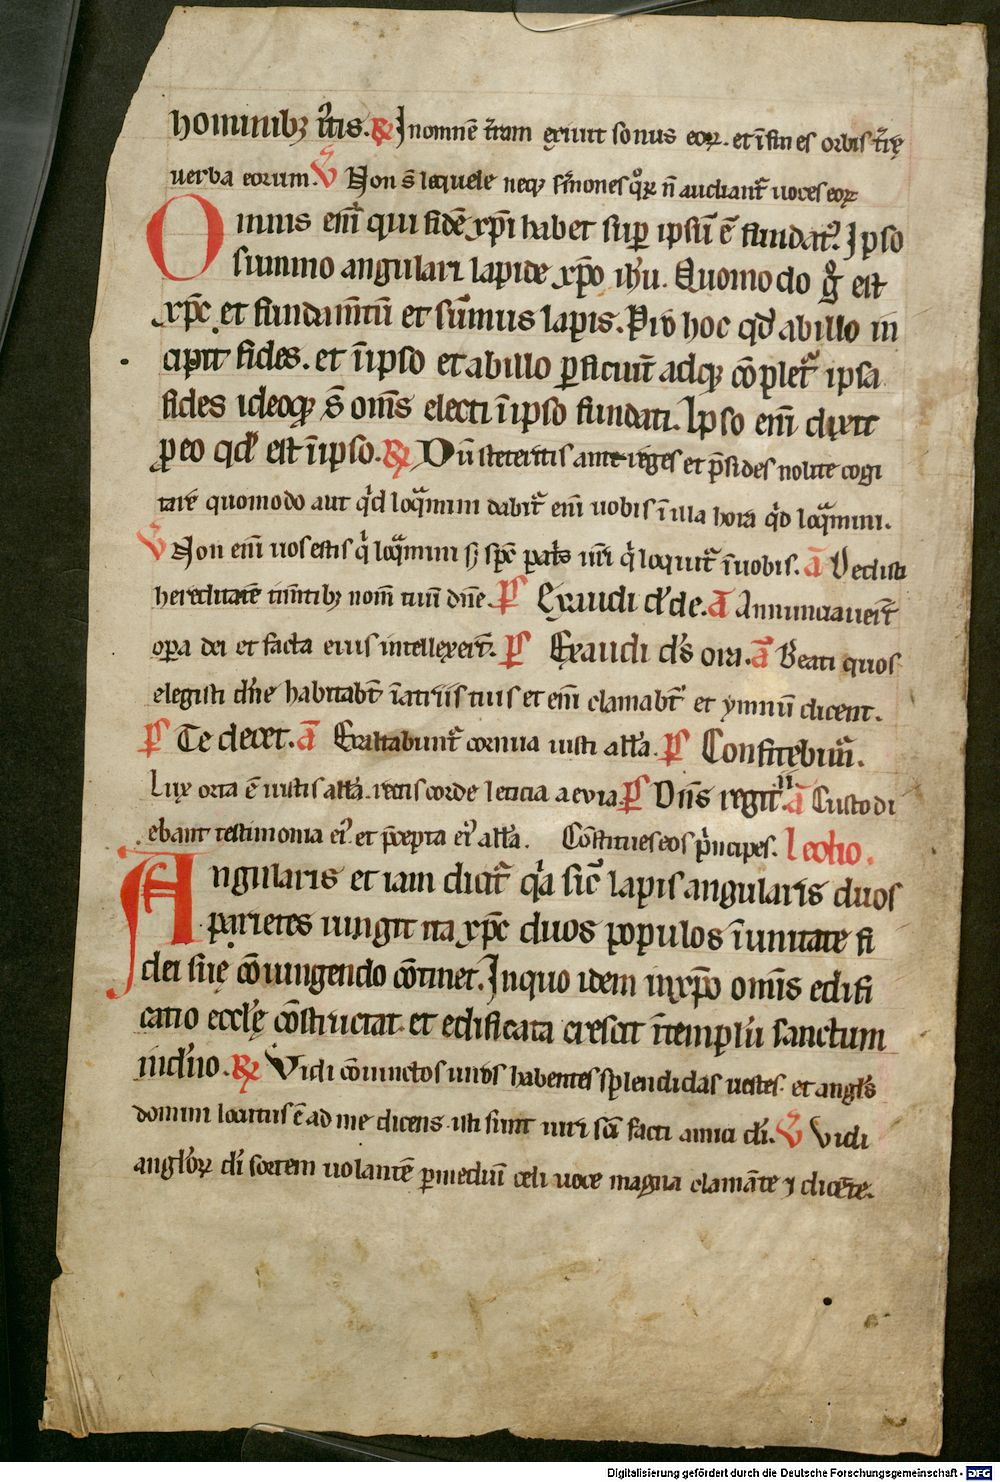 hominibꝫ īr̄is. ℞ Jnomnē t̄ram exiuit sonus eoꝝ. et ī fines orbis t̄r̄ę
uerba eorum. ℣ Non s̄ loquele neqꝫ s̄mones qͦꝝ n̄ audiant᷑ uoces eoꝝ
Omnis eni̅ qui fidē xp̄i habet sup̲ ipsū ē fundat᷑. Jpso
summo angulari lapide xp̄o ih̄u. Quomodo g̊ est
xp̄c et fundam̄tū et sūmus lapis. Pro hoc qd̄ ab illo in
cipit fides. et ī ipso et ab illo ꝑficiut᷑ adqꝫ cōplet᷑ ipsa
fides ideoqꝫ s̄ om̄s electi ī ipso fundati. Ipso eni̅ dixit
ꝑ eo qd̄ est ī ipso. ℞ Dū steteritis ante reges et p̄sides nolite cogi
tare quomodo aut qͥd loqͣmini dabit᷑ eni̅ uobis ī illa hora qͥd loqͣmini.
℣ Non eni̅ uos estis qͥ loqͣmini sꝫ sp̄c pat̄s ur̄i qͥ loquit᷑ ī uobis. a̅ Dedisti
hereditatē tim̄tibꝫ nom̄ tuū dn̄e. p̄s Exaudi d̄s de. a̅ Annunciauer̄t
opera dei et facta eius intellexer̄t. p̄s Exaudi d̄s ora. a̅ Beati quos
elegisti dn̄e habitabt̄ ī atriis tuis et eni̅ clamabt̄ et ymnū dicent.
p̄s Te decet. a̅ Exaltabunt᷑ cornua iusti all̄a. p̄s Confitebimͥ.
Lux orta ē iustis all̄a. rectis corde leticia aeuia. p̄s Dn̄s regͥt. a̅ Custodi
ebant testimonia eiꝰ et p̄cepta eiꝰ all̄a. Cōstitues eos pͥncipes. Lectio.
Angularis et iam dict᷑ qͥa sic̄ lapis angularis duos
parietes iungit ita xp̄c duos populos ī unitate fi
dei suę cōiungendo cōtinet. Jn quo idem in xp̄o om̄is edifi
catio eccl̄ę cōstructa. et edificata crescit ī templū sanctum
in dn̄o. ℞ Vidi cōiunctos uiros habentes splendidas uestes. et angl̄s
domini locutus ē ad me dicens isti sunt uiri sc̄i facti amici di̅. ℣ Vidi
angl̄oꝝ di̅ fortem uolantē ꝑ mediū celi uoce magna clamāte ⁊ dicēte.
Digitalisierung gefördert durch die Deutsche Forschungsgemeinschaft - DFG